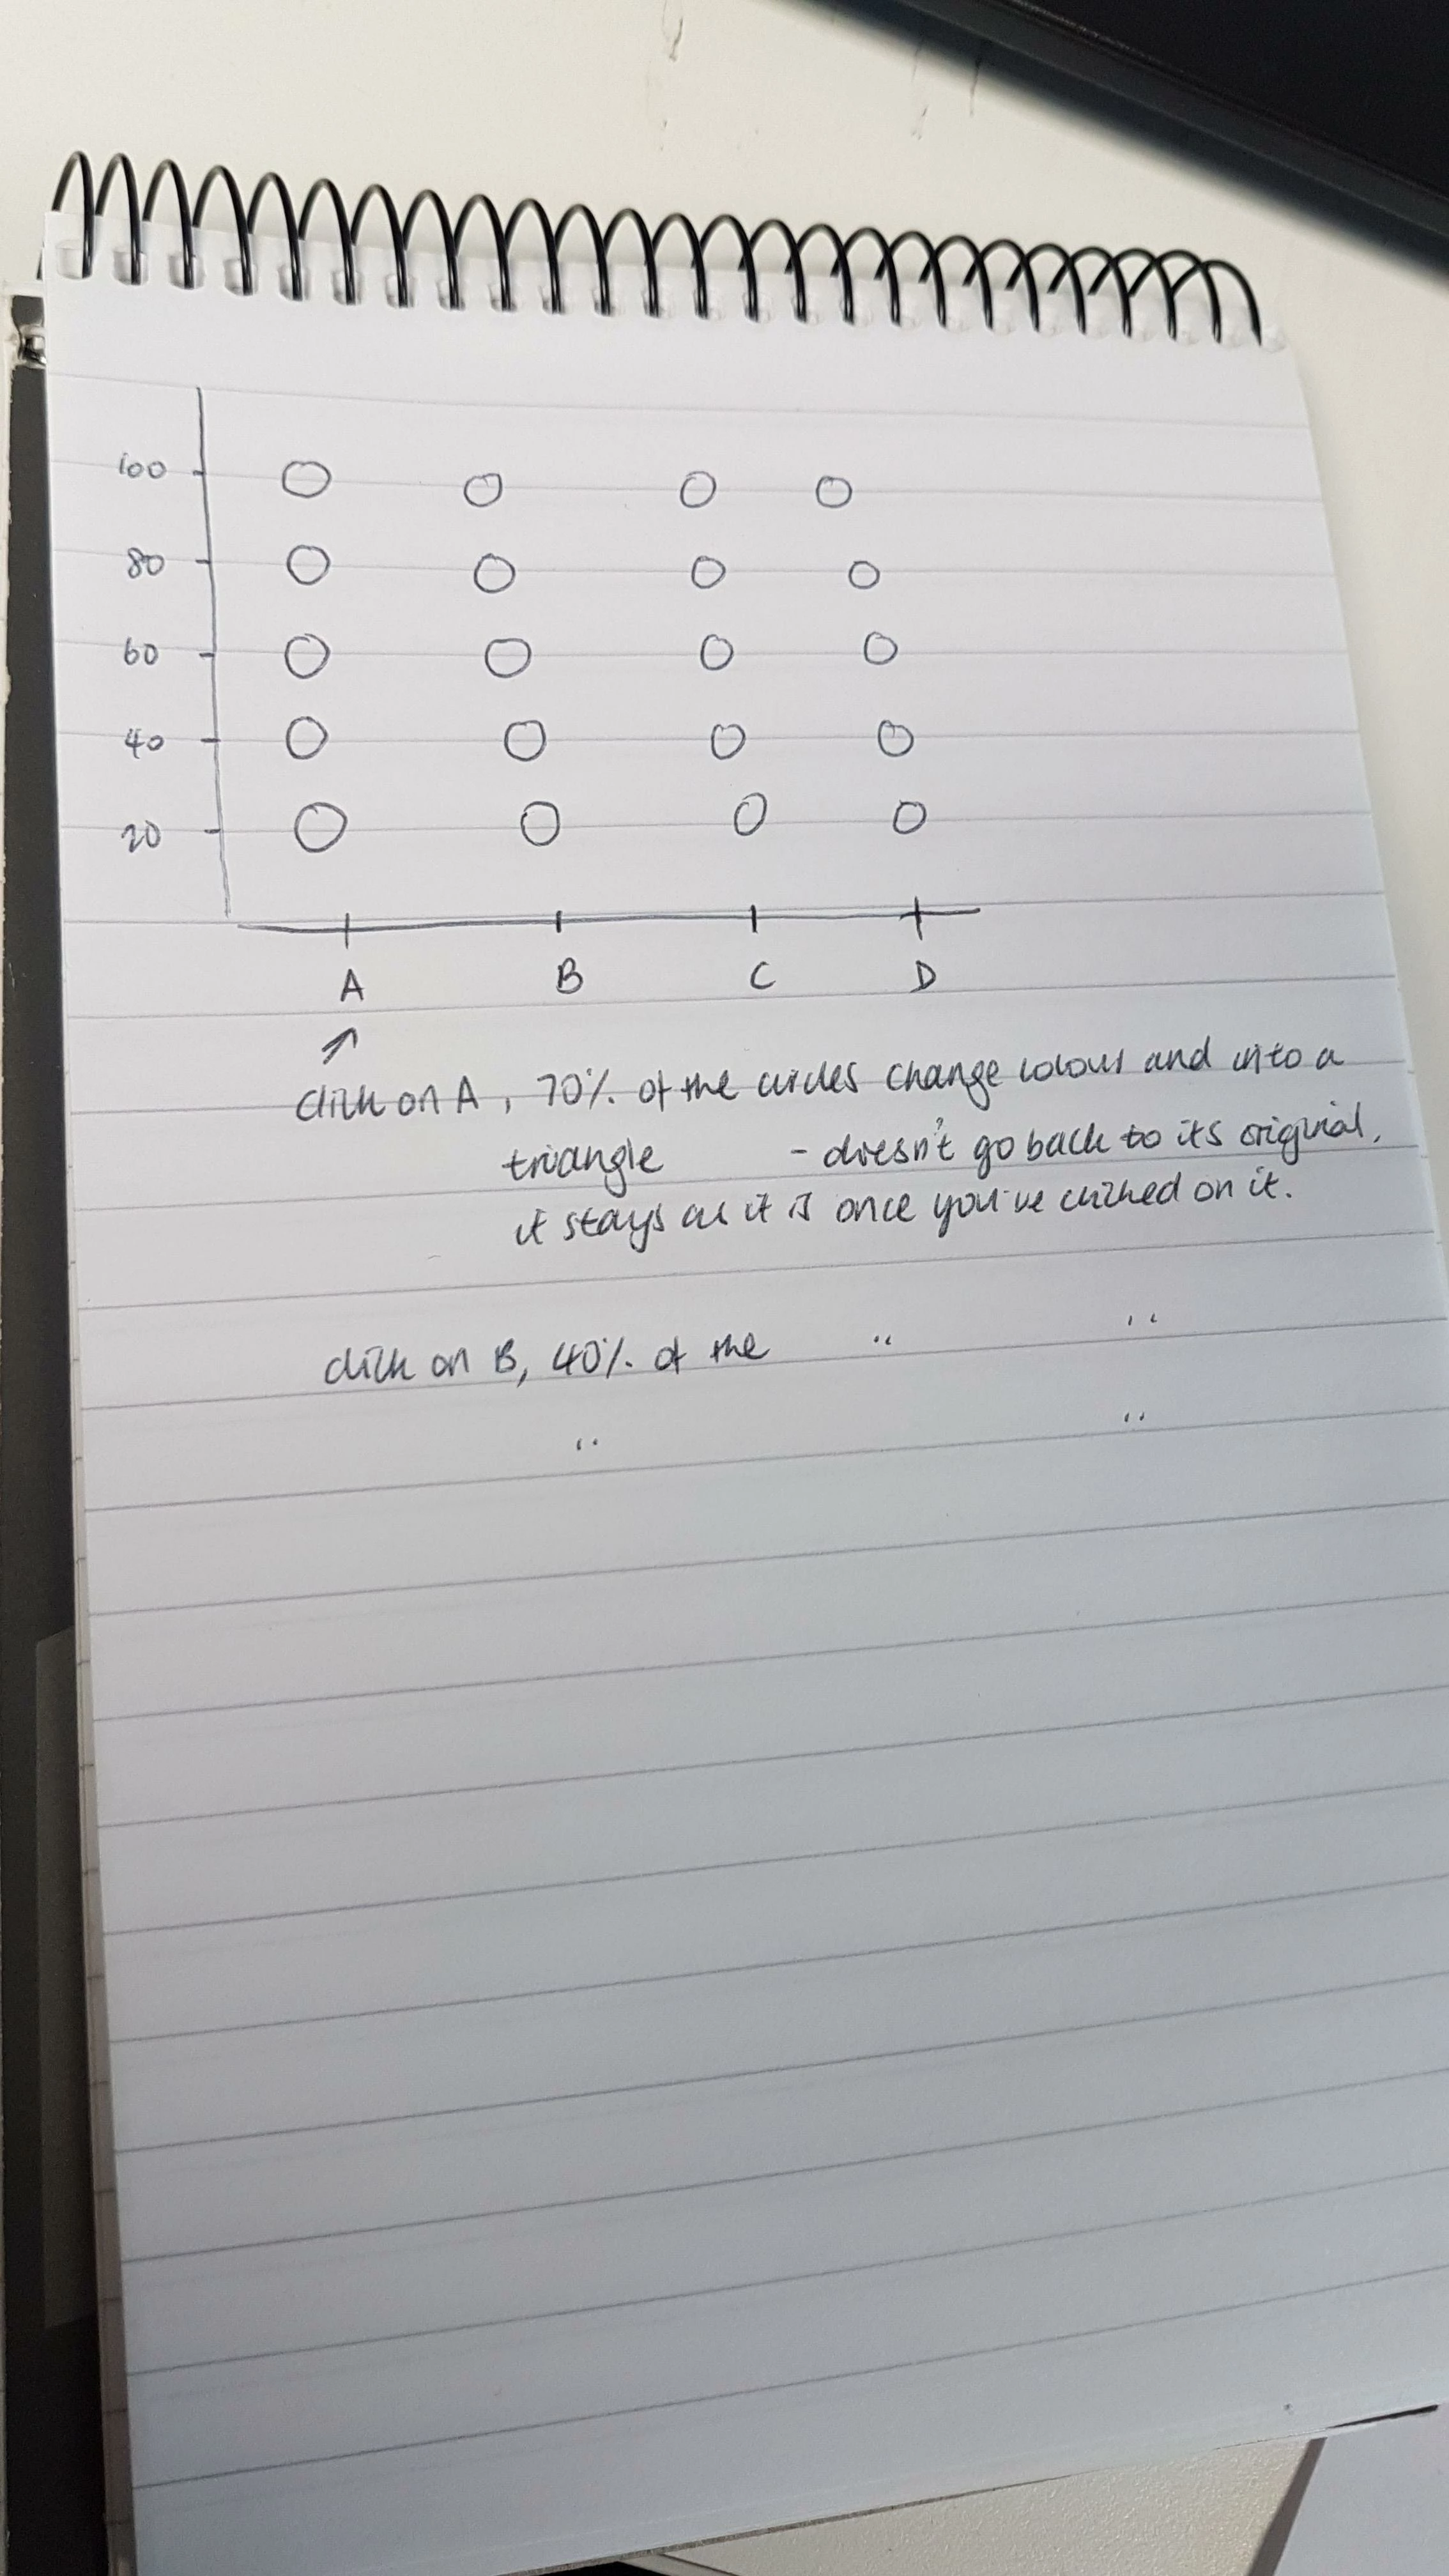 100
80
60
40
20
A B C D
click on A, 70% of the circles change colour and into a
triangle - doesn't go back to its original,
it stays as it is once you've clicked on it.
click on B, 40% of the " "
" "